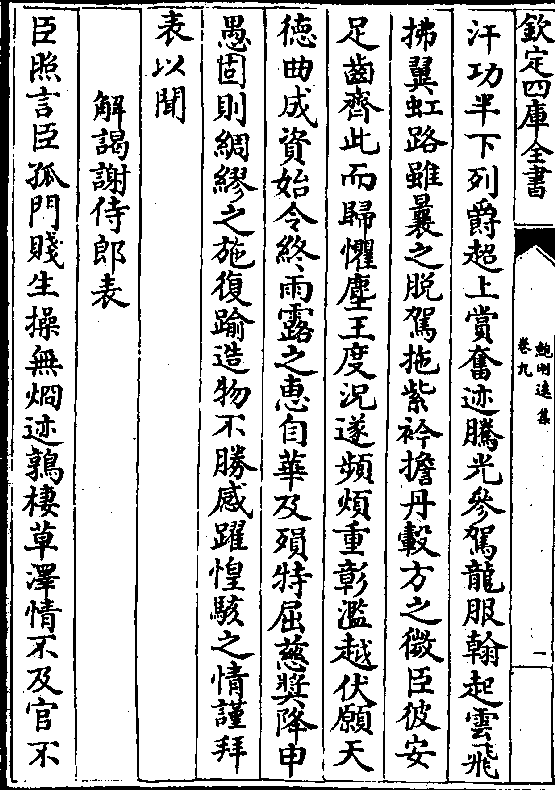 欽定四庫全書
鮑明遠集
卷九
一
汗功半下列爵超上賞奮迹騰光參駕龍服翰起雲飛
拂翼虹路雖曩之脫駕拖紫衿擔丹轂方之微臣彼安
足齒齊此而歸懼塵王度況遂頻煩重彰濫越伏願天
德曲成資始令終雨露之惠自華及殞特屈慈奬降申
愚固則綢繆之施復踰造物不勝感躍惶駭之情謹拜
表以聞
解謁謝侍郎表
臣照言臣孤門賤生操無烱迹鶉棲草澤情不及官不